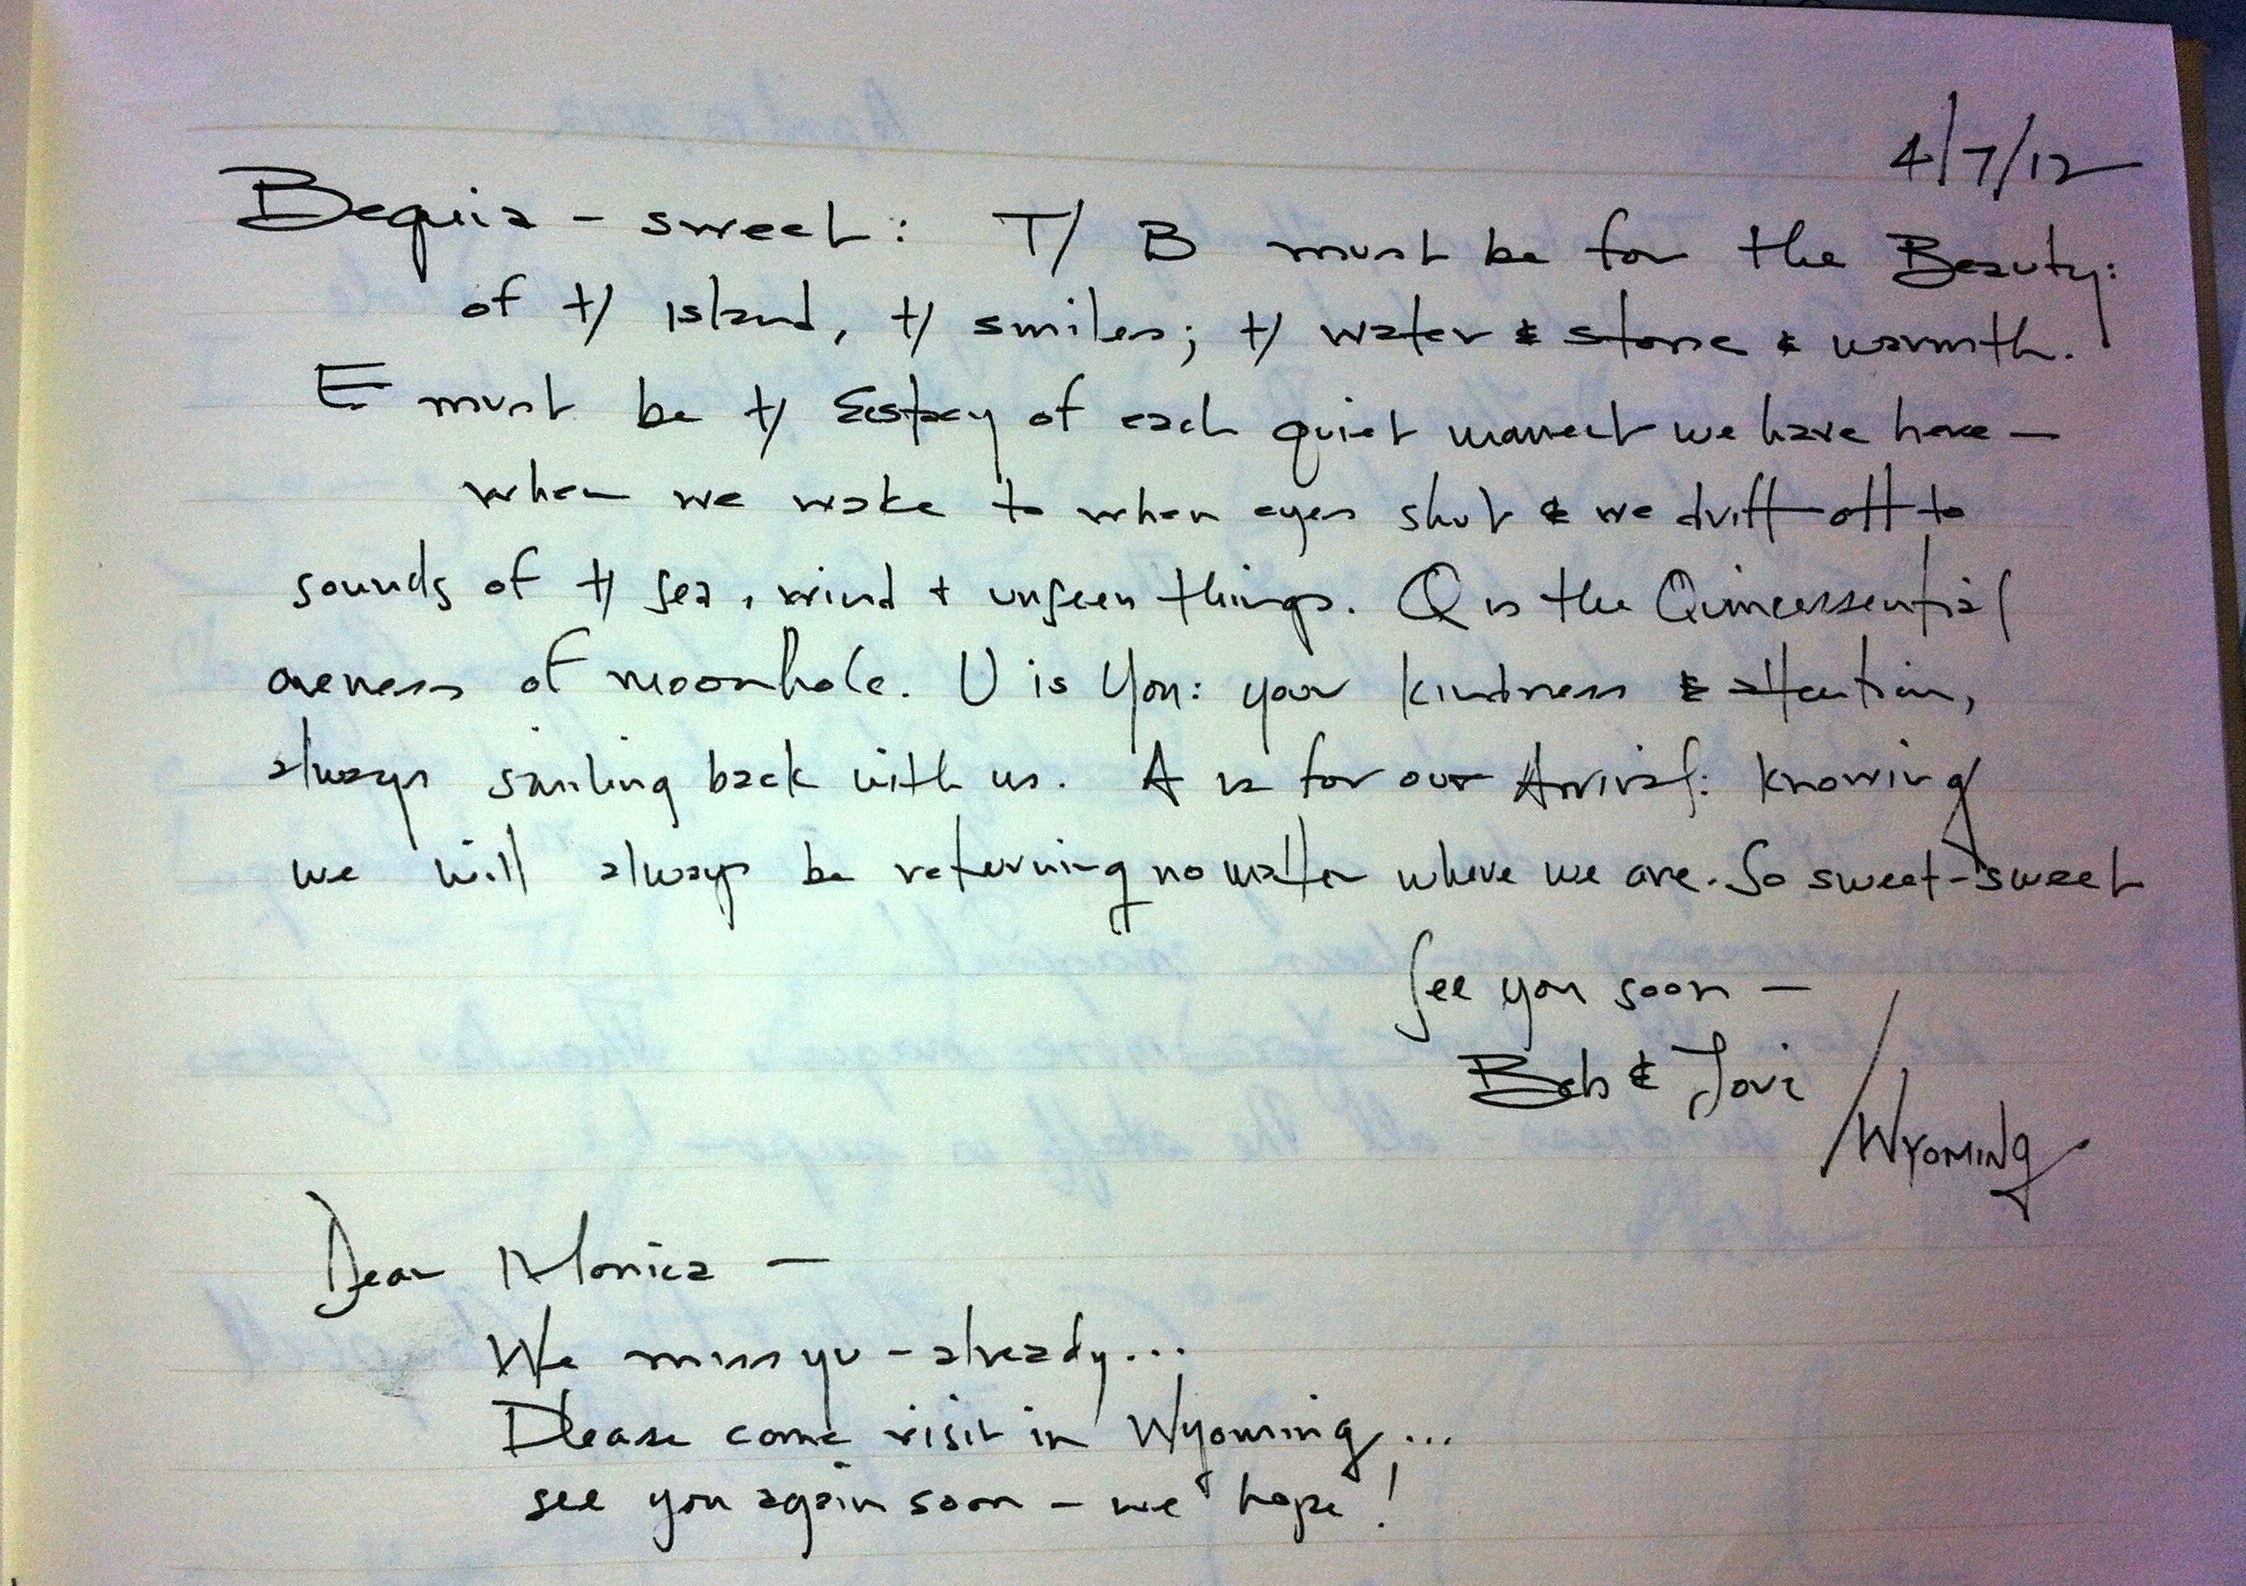 4/7/12
Bequia - sweet: T/ B must be for the Beauty:
of t/ island, t/ smiles; t/ water & stone & warmth.
E must be t/ Ecstacy of each quiet moment we have here —
when we wake to when eyes shut & we drift off to
sounds of t/ sea, wind + unseen things. Q is the Quincessential
oneness of moonhole. U is You: your kindness & attention,
always smiling back with us. A is for our Arrival: knowing
we will always be returning no matter where we are. So sweet-sweet
See you soon —
Bob & Tovi
/Wyoming
Dear Monica —
We miss yu - already...
Please come visit in Wyoming...
see you again soon - we hope!